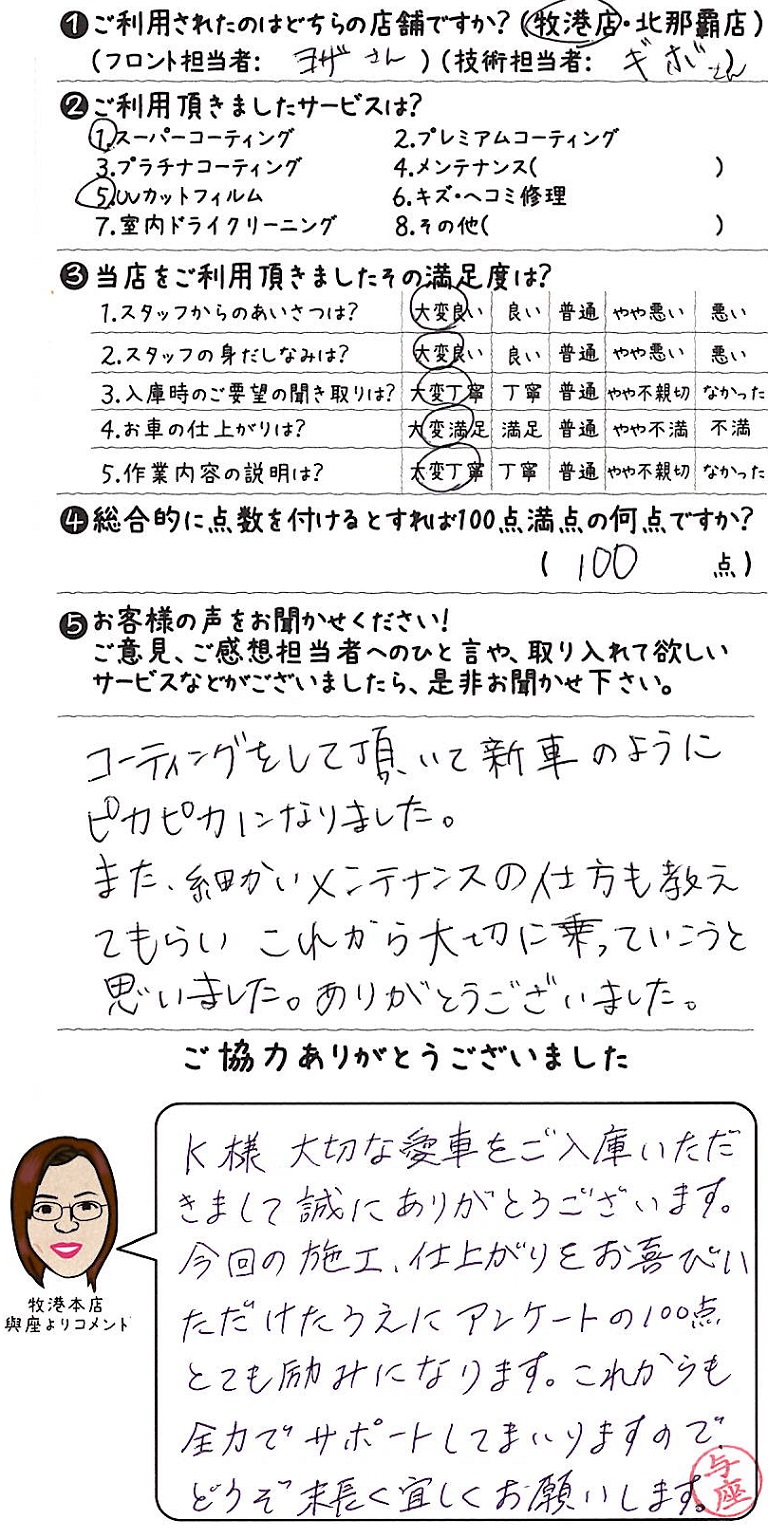 ❶ご利用されたのはどちらの店舗ですか?(牧港店・北那覇店)
(フロント担当者: ヨザ さん )(技術担当者: ギボさん)
❷ご利用頂きましたサービスは?
1.スーパーコーティング 2.プレミアムコーティング
3.プラチナコーティング 4.メンテナンス( )
5.UVカットフィルム 6.キズ・ヘコミ修理
7.室内ドライクリーニング 8.その他( )
❸当店をご利用頂きましたその満足度は?
1.スタッフからのあいさつは? 大変良い 良い 普通 やや悪い 悪い
2.スタッフの身だしなみは? 大変良い 良い 普通 やや悪い 悪い
3.入庫時のご要望の聞き取りは? 大変丁寧 丁寧 普通 やや不親切 なかった
4.お車の仕上がりは? 大変満足 満足 普通 やや不満 不満
5.作業内容の説明は? 大変丁寧 丁寧 普通 やや不親切 なかった
❹総合的に点数を付けるとすれば100点満点の何点ですか?
( 100 点)
❺お客様の声をお聞かせください!
ご意見、ご感想担当者へのひと言や、取り入れて欲しい
サービスなどがございましたら、是非お聞かせ下さい。
コーティングをして頂いて新車のように
ピカピカになりました。
また、細かいメンテナンスの仕方も教え
てもらい これから大切に乗っていこうと
思いました。ありがとうございました。
ご協力ありがとうございました
K様 大切な愛車をご入庫いただ
きまして誠にありがとうございます。
今回の施工、仕上がりをお喜びい
ただけたうえにアンケートの100点
とても励みになります。これからも
全力でサポートしてまいりますので、
どうぞ末長く宜しくお願いします。
与座
牧港本店
與座よりコメント